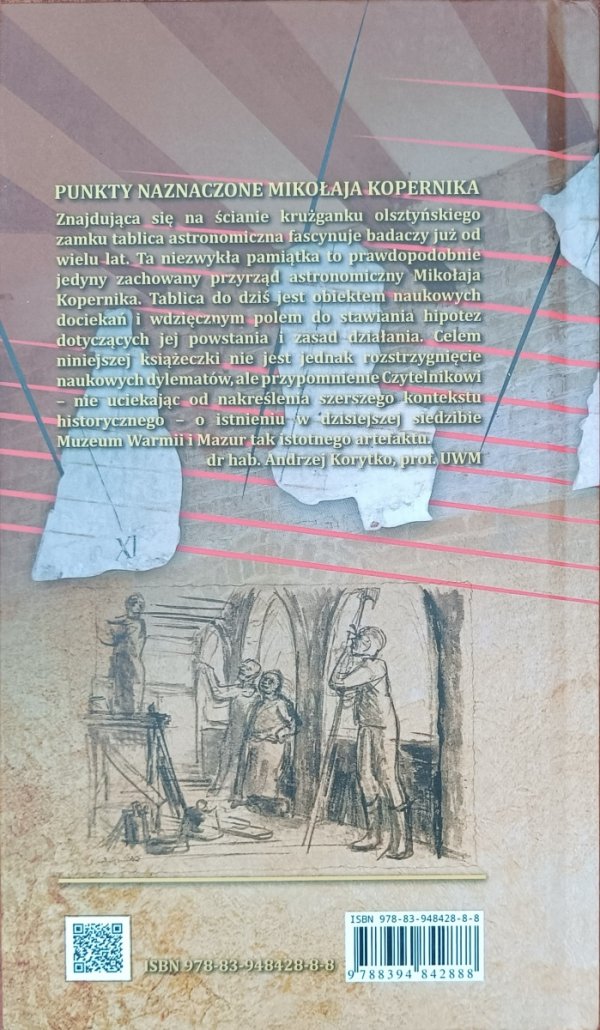 PUNKTY NAZNACZONE MIKOŁAJA KOPERNIKA
Znajdująca się na ścianie krużganku olsztyńskiego
zamku tablica astronomiczna fascynuje badaczy już od
wielu lat. Ta niezwykła pamiątka to prawdopodobnie
jedyny zachowany przyrząd astronomiczny Mikołaja
Kopernika. Tablica do dziś jest obiektem naukowych
dociekań i wdzięcznym polem do stawiania hipotez
dotyczących jej powstania i zasad działania. Celem
niniejszej książeczki nie jest jednak rozstrzygnięcie
naukowych dylematów, ale przypomnienie Czytelnikowi
– nie uciekając od nakreślenia szerszego kontekstu
historycznego – o istnieniu w dzisiejszej siedzibie
Muzeum Warmii i Mazur tak istotnego artefaktu.
dr hab. Andrzej Korytko, prof. UWM
XI
ISBN 978-83-948428-8-8
ISBN 978-83-948428-8-8
9 788394 842888